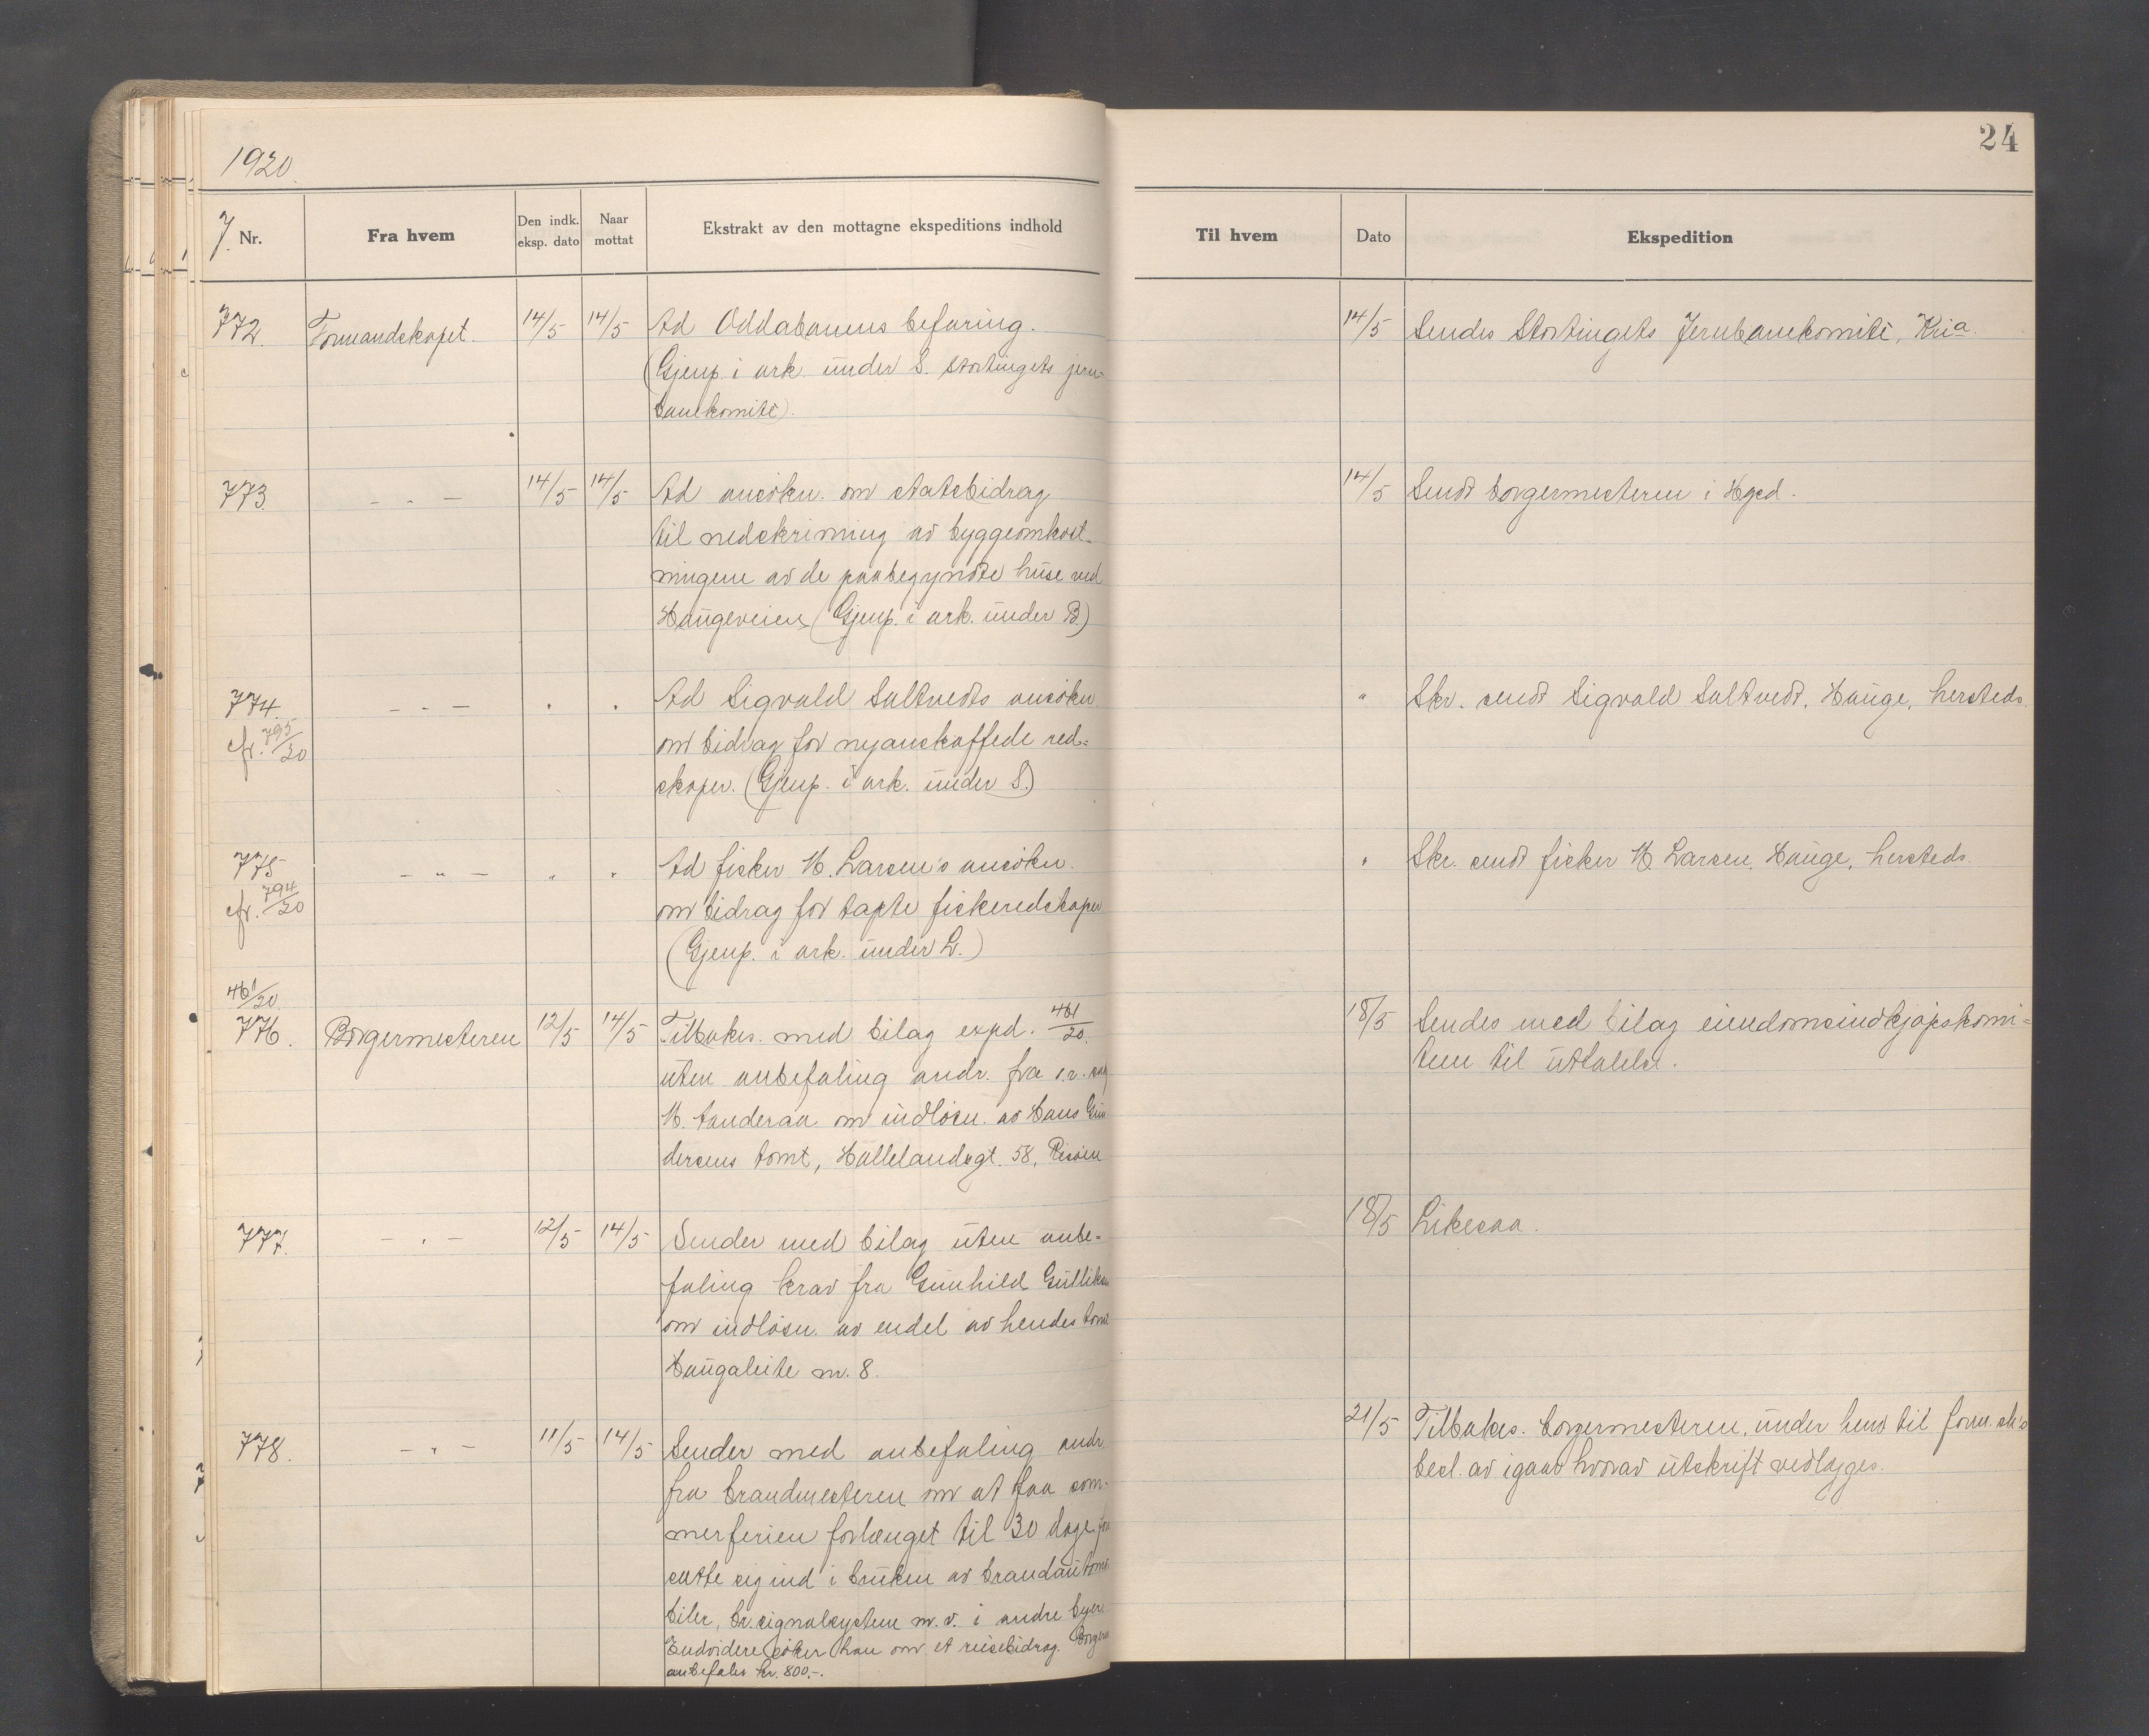 24
1920.
J. Nr.
Fra hvem
Den indk. eksp. dato
Naar mottat
Ekstrakt av den mottagne ekspeditions indhold
Til hvem
Dato
Ekspedition
772. Formandskapet. 14/5 14/5 Ad Oddabanens befaring.
(Gjenp. i ark. under S. stortingets jern-
banekomite).
14/5 Sendes Stortingets Jernbanekomite, Kria.
773. - " - 14/5 14/5 Ad ansökn. om statsbidrag
til nedskrivning av byggeomkost-
ningene av de paabegyndte huse ved
Haugeveien (Gjenp. i ark. under B)
14/5 Sendt borgermesteren i Hgsd.
774. - " - " " Ad Sigvald Saltvedts ansökn
cfr. 795/20 om bidrag for nyanskaffede red-
skaper. (Gjenp. i ark. under S.)
" Skr. sendt Sigvald Saltvedt, Hauge, hersteds.
775 - " - " " Ad fisker M. Larsen's ansökn.
cfr. 794/20 om bidrag for tapte fiskeredskaper
(Gjenp. i ark. under L.)
" Skr. sendt fisker M. Larsen, Hauge, hersteds.
461/20
776. Borgermesteren 12/5 14/5 Tilbakes. med bilag expd. 461/20.
uten anbefaling andr. fra o.r. sag
M. Aanderaa om indlösn. av Hans Gun
dersens tomt, Hallelandsgt. 58, Risöen
18/5 Sendes med bilag eiendomsindkjøpskomi-
teen til uttalelse.
777. - " - 12/5 14/5 Sender med bilag uten anbe-
faling krav fra Gunhild Gulliksen
om indlösn. av endel av hendes tomt
Haugaleite nr. 8.
18/5 Likesaa.
778. - " - 11/5 14/5 Sender med anbefaling andr.
fra brandmesteren om at faa som-
merferien forlænget til 30 dage for
sætte sig ind i bruken av brandautomo
biler, br.signalsystem m.v. i andre byer.
Endvidere söker han om et reisebidrag. Borgerm
anbefaler kr. 800,-.
21/5 Tilbakes. borgermesteren, under henv til form.sk's
besl. av igaar hvorav utskrift vedlægges.